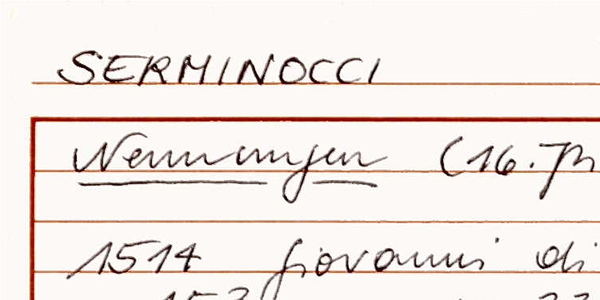 SERMINOCCI
Nennungen (16. Jh
1514 Giovanni di